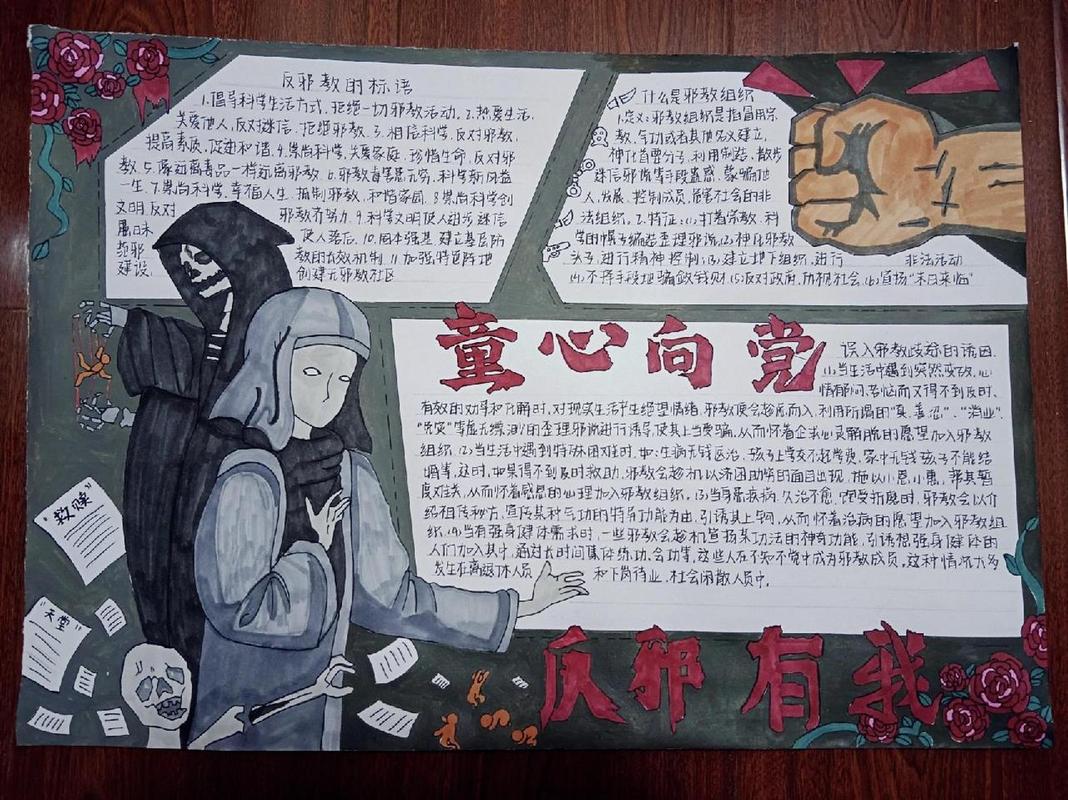 反邪教的标语
1.倡导科学生活方式,拒绝一切邪教活动。2.热爱生活,
关爱他人,反对迷信,拒绝邪教。3.相信科学,反对邪教,
提高素质,促进和谐。4.崇尚科学,关爱家庭,珍惜生命,反对邪
教。5.像远离毒品一样远离邪教。6.邪教害是无穷,科学新风益
一生。7.崇尚科学,幸福人生,抵制邪教,和谐家园。8.崇尚科学创
文明,反对 邪教有努力。9.科学文明使人进步,迷信
愚昧 使人落后。10.固本强基,建立基层防
范邪 教的有效机制。11.加强特色阵地
建设, 创建无邪教社区
什么是邪教组织
1.定义:邪教组织是指冒用宗
教、气功或者其他名义建立,
神化首要分子,利用制造、散步
迷信邪说等手段蛊惑、蒙骗他
人,发展、控制成员,危害社会的非
法组织。2.特征:(1).打着宗教、科
学的幌子编造歪理邪说(2)神化邪教
头子,进行精神控制;(3)建立地下组织,进行 非法活动
(4)不择手段地骗敛钱财(5)反对政府,仇视社会(6)宣扬"末日来临"
童心向党
误入邪教歧途的诱因
(1)当生活中遇到突然变故,心
情郁闷、苦恼而又得不到及时、
有效的劝导和化解时,对现实生活产生绝望情绪,邪教便会趁虚而入,利用所谓的"真、善、忍"、"消业"、
等虚无缥渺的歪理邪说进行诱导,使其上当受骗,从而怀着企求心灵解脱的愿望加入邪教
组织。(2)当生活中遇到特殊困难时,如:生病无钱医治、孩子上学交不起学费、家中无钱孩子不能结
婚等,这时,如果得不到及时救助,邪教会趁机以济困助弱的面目出现,施以小恩小惠,帮其暂
度难关,从而怀着感恩的心理加入邪教组织。(3)当身患疾病,久治不愈,饱受折磨时,邪教会以介
绍祖传秘方、宣传某种气功的特异功能为由,引诱其上钩,从而怀着治病的愿望加入邪教组
织。(4)当有强身健体需求时,一些邪教会趁机宣扬某功法的神奇功能,引诱想强身健体的
人们加入其中,通过长时间集体练功、会功等,这些人在不知不觉中成为邪教成员。这种情况大多
发生在离退休人员 和下岗待业、社会闲散人员中。
"救赎"
"天堂"
反邪有我